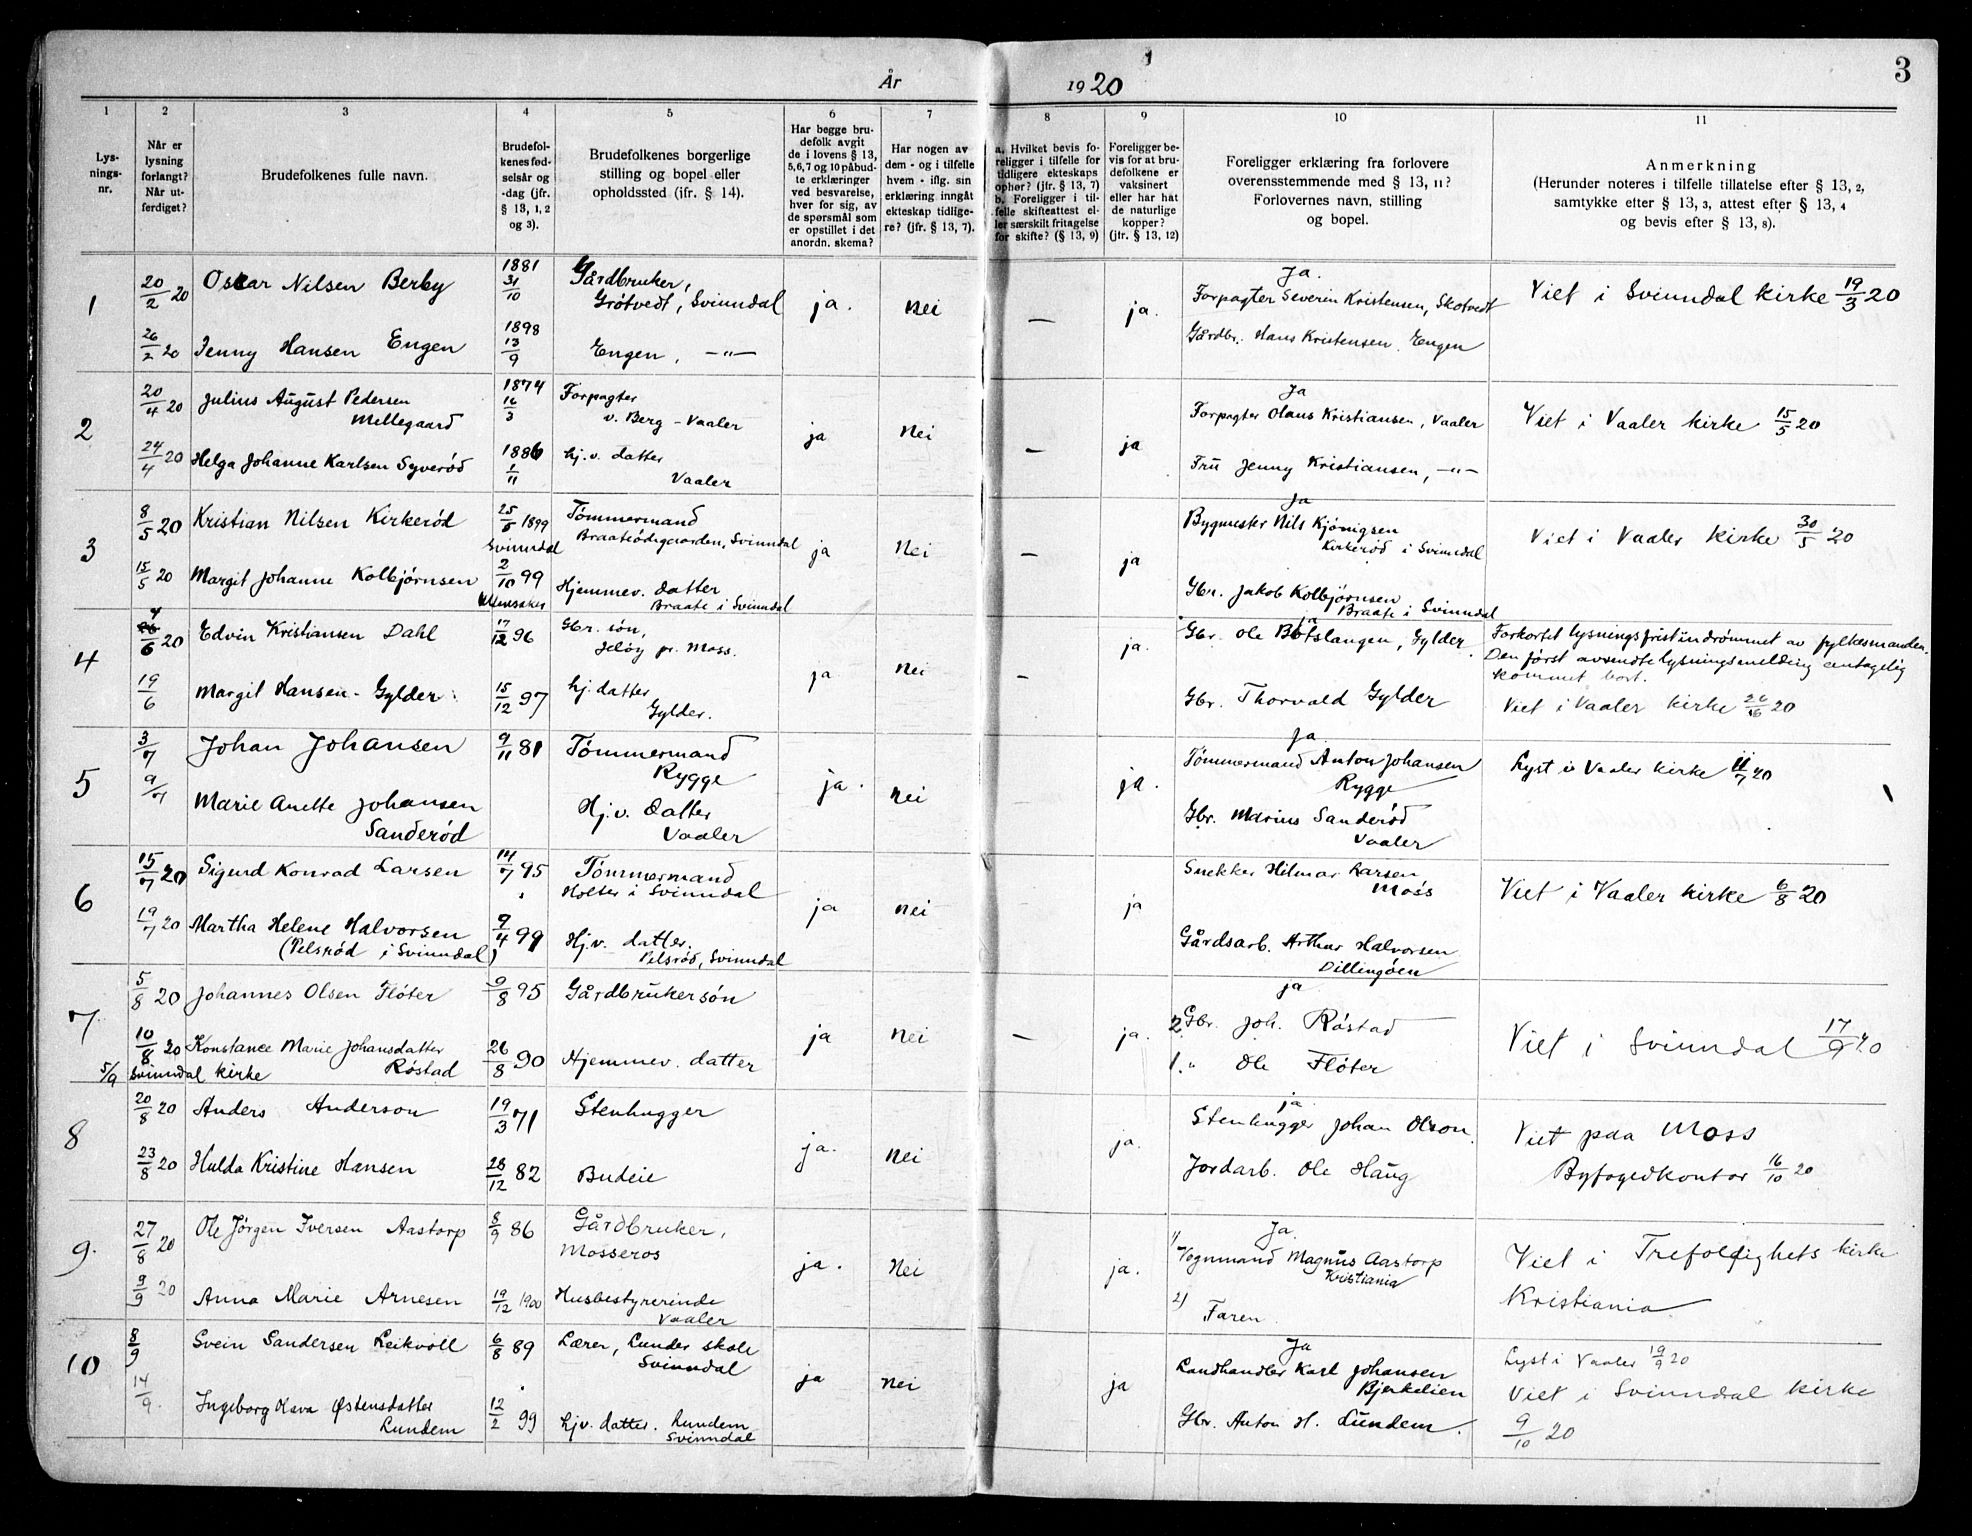 År 1920
3
1
2
3
4
5
6
7
8
9
10
11
Lys-
nings-
nr.
Når er
lysning
forlangt?
Når ut-
ferdiget?
Brudefolkenes fulle navn.
Brudefol-
kenes fød-
selsår og
-dag (jfr.
§ 13, 1, 2
og 3).
Brudefolkenes borgerlige
stilling og bopel eller
opholdssted (jfr. § 14).
Har begge bru-
defolk avgit
de i lovens § 13,
5,6,7 og 10 påbud-
te erklæringer
ved besvarelse,
hver for sig, av
de spørsmål som
er opstillet i det
anordn. skema?
Har nogen av
dem - og i tilfelle
hvem - iflg. sin
erklæring inngått
ekteskap tidlige-
re? (jfr. § 13, 7).
a. Hvilket bevis fo-
religger i tilfelle for
tidligere ekteskaps
ophør? (jfr. § 13, 7)
b. Foreligger i til-
felle skifteattest el-
ler særskilt fritagelse
for skifte? (§ 13, 9)
Foreligger be-
vis for at bru-
defolkene er
vaksinert
eller har hat
de naturlige
kopper?
(jfr. § 13, 12)
Foreligger erklæring fra forlovere
overensstemmende med § 13, 11?
Forlovernes navn, stilling
og bopel.
Anmerkning
(Herunder noteres i tilfelle tillatelse efter § 13, 2,
samtykke efter § 13, 3, attest efter § 13, 4
og bevis efter § 13, 8).
1
20/2 20 Oscar Nilsen Berby 1881 31/10 Gårdbruker,
Grøtvedt, Svinndal ja. nei — ja.
Ja.
Forpagter Severin Kristensen, Skotvedt
Viet i Svinndal kirke 19/3 20
26/2 20 Jenny Hansen Engen 1898 13/9 Engen, —"—
Gårdbr. Hans Kristensen Engen
2
20/4 20 Julius August Pedersen
Mellegaard 1874 16/3 Forpagter
v. Berg - Vaaler ja nei — ja
Ja
Forpagter Olaus Kristiansen, Vaaler
Viet i Vaaler kirke 15/5 20
24/4 20 Helga Johanne Karlsen Syverød 1886 1/11 hj.v. datter
Vaaler
Fru Jenny Kristiansen, —"—
3
8/5 20 Kristian Nilsen Kirkerød 25/6 1899
Svinndal
Tømmermand
Braaterødgaarden, Svinndal ja Nei — ja
Ja
Bygmester Nils Kjønigsen
Kirkerød i Svinndal
Viet i Vaaler kirke 30/5 20
15/5 20 Margit Johanne Kolbjørnsen 2/10 99
Hjemmev. datter
Braate i Svinndal
Gbr. Jakob Kolbjørnsen
Braate i Svinndal
4
4/6 20 Edvin Kristiansen Dahl 17/12 96 Gbr. søn,
Jeløy pr. Moss. ja nei — ja.
Ja
Gbr. Ole Botslangen, Gylder
Forkortet lysningsfrist indrømmet av fylkesmanden.
Den først avsendte lysningsmelding antagelig
kommet bort.
19/6 Margit Hansen - Gylder 15/12 97 hj. datter
Gylder.
Gbr. Thorvald Gylder
Viet i Vaaler kirke 26/6 20
5
3/7 Johan Johansen 9/11 81 Tømmermand
Rygge ja. nei ja.
Ja
Tømmermand Anton Johansen
Rygge
Lyst i Vaaler kirke 11/7 20
9/7 Marie Anette Johansen
Sanderød Hj.v. datter
Vaaler
Gbr. Marius Sanderød
Vaaler
6
15/7 20 Sigurd Konrad Larsen 14/7 95 Tømmermand
Holter i Svinndal ja nei ja
Snekker Hilmar Larsen
Moss
Viet i Vaaler kirke 6/8 20
19/7 20 Martha Helene Halvorsen
(Pelsrød i Svinndal) 9/4 99 Hj.v. datter.
Pelsrød, Svinndal
Gårdsarb. Arthur Halvorsen
Dillingøen
7
5/8 20 Johannes Olsen Fløter 9/8 95 Gårdbrukersøn ja nei — ja.
ja
2. Gbr. Joh. Røstad
Viet i Svinndal 17/9 20
10/8 20 Konstance Marie Johansdatter
Røstad 26/8 90 Hjemmev. datter
1. " Ole Fløter
5/9 Svinndal kirke
8
20/8 20 Anders Anderson 19/3 71 Stenhugger ja. nei ja.
ja
Stenhugger Johan Olson
Viet paa Moss
Byfogedkontor 16/10 20
23/8 20 Hulda Kristine Hansen 28/12 82 Budeie
Jordarb. Ole Haug
9.
27/8 20 Ole Jørgen Iversen Aastorp 8/9 86 Gårdbruker,
Mosseros ja. Nei ja.
Ja.
1) Vognmand Magnus Aastorp
Kristiania
Viet i Trefoldighets kirke
Kristiania
9/9 20 Anna Marie Arnesen 19/12 1900 Husbestyrerinde
Vaaler
2) Faren
10
8/9 Svein Sandersen Leikvoll 6/8 89 Lærer, Lunder skole
Svinndal ja nei ja
Ja
Landhandler Karl Johansen
Bjerkelien
Lyst i Vaaler 19/9 20
Viet i Svinndal kirke
9/10 20
14/9. Ingeborg Østensdatter
Lundem 12/2 99 hjv. datter. Lundem
Svinndal
Gbr. Anton H. Lundem.